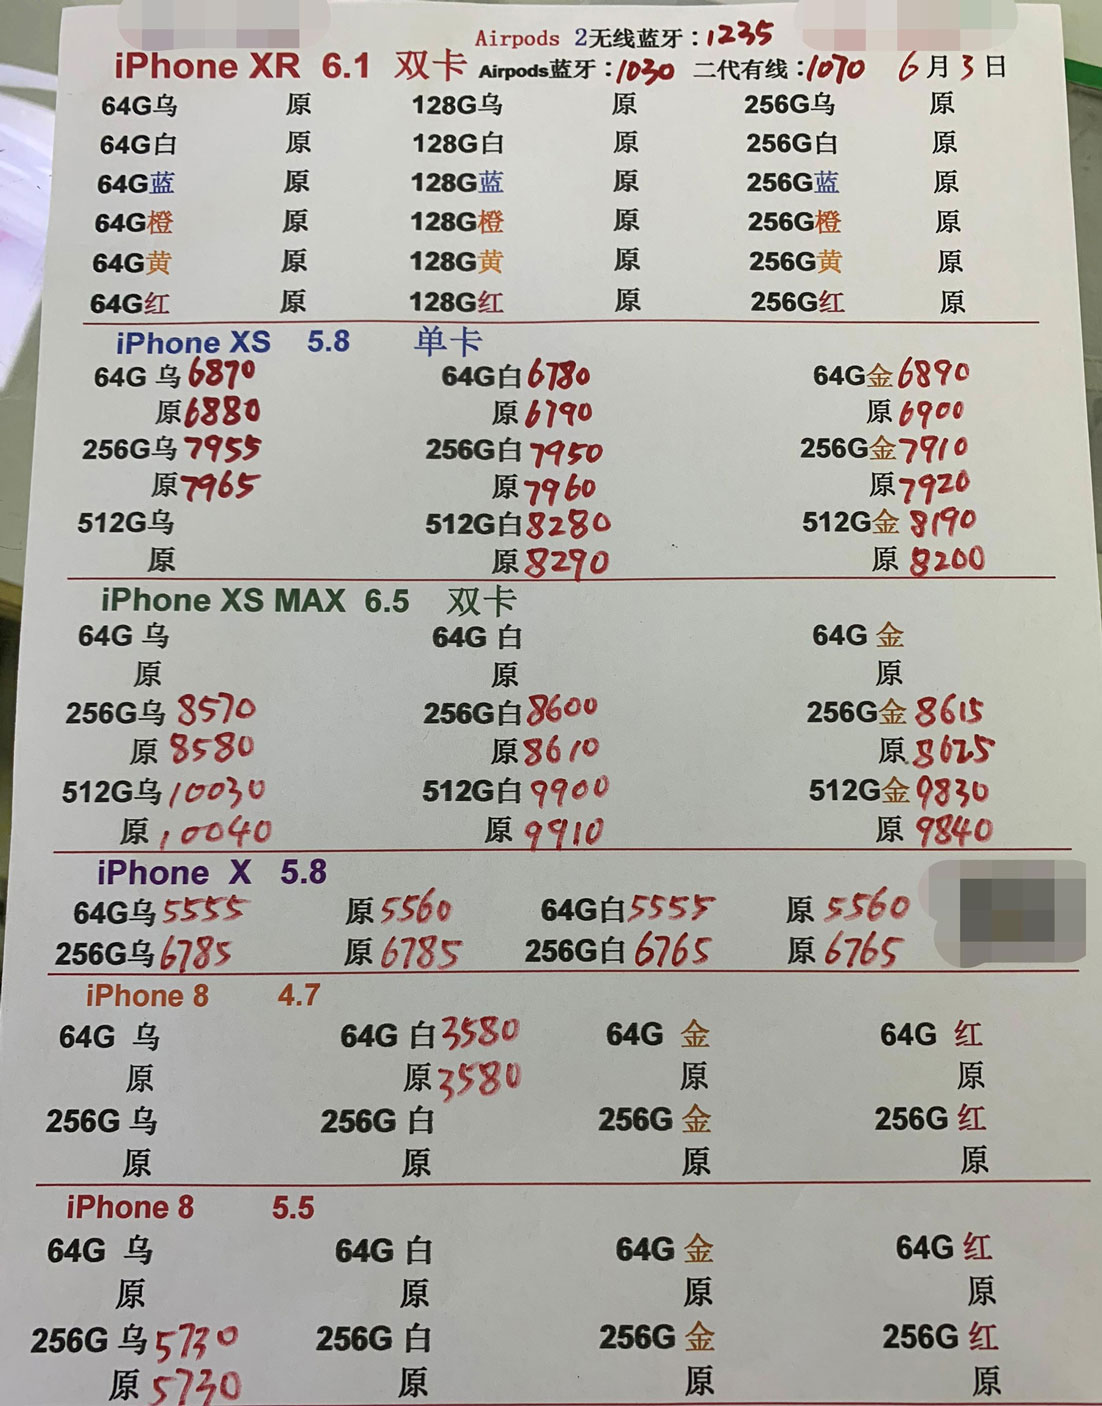 Airpods 2无线蓝牙：1235
iPhone XR 6.1 双卡 Airpods蓝牙：1030 二代有线：1070 6月3日
64G乌 原 128G乌 原 256G乌 原
64G白 原 128G白 原 256G白 原
64G蓝 原 128G蓝 原 256G蓝 原
64G橙 原 128G橙 原 256G橙 原
64G黄 原 128G黄 原 256G黄 原
64G红 原 128G红 原 256G红 原
iPhone XS 5.8 单卡
64G 乌6870 64G白6780 64G金6890
原6880 原6790 原6900
256G乌7955 256G白7950 256G金7910
原7965 原7960 原7920
512G乌 512G白8280 512G金8190
原 原8290 原8200
iPhone XS MAX 6.5 双卡
64G 乌 64G 白 64G 金
原 原 原
256G乌 8570 256G白8600 256G金8615
原 8580 原8610 原8625
512G乌10030 512G白9900 512G金9830
原10040 原 9910 原 9840
iPhone X 5.8
64G乌5555 原5560 64G白5555 原 5560
256G乌6785 原6785 256G白6765 原6765
iPhone 8 4.7
64G 乌 64G 白3580 64G 金 64G 红
原 原3580 原 原
256G 乌 256G 白 256G 金 256G 红
原 原 原 原
iPhone 8 5.5
64G 乌 64G 白 64G 金 64G 红
原 原 原 原
256G 乌5730 256G 白 256G 金 256G 红
原5730 原 原 原